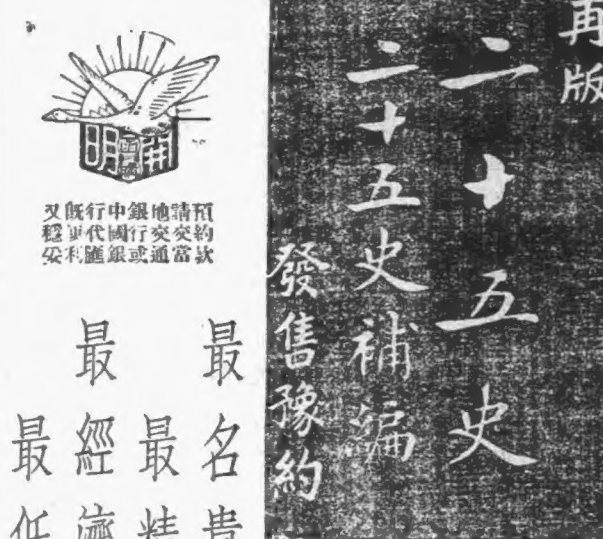 再版
二十五史
二十五史補編
發售豫約
開明
預約款
請交當
地交通
銀行或
中國銀
行代匯
既便利
又穩妥
最名貴
最精
最經濟
最低